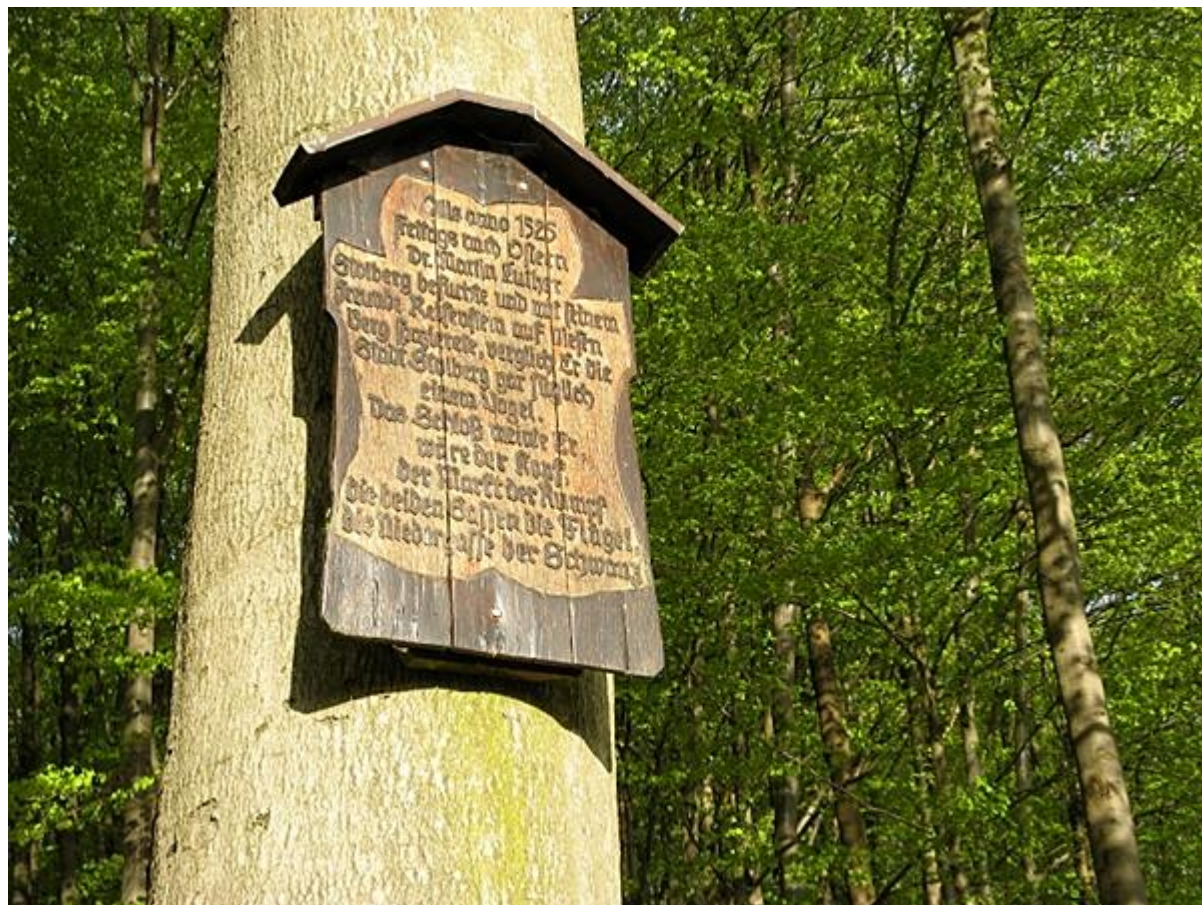 Als anno 1525
Freitags nach Ostern
Dr. Martin Luther
Stolberg besuchte und mit seinem
Freunde Reifenstein auf diesen
Berg spazierete, verglich Er die
Stadt Stolberg gar füglich
einem Vogel.
Das Schloß meinte Er,
wäre der Kopf
der Markt der Rumpf
die beiden Gassen die Flügel,
die Niedergasse der Schwanz